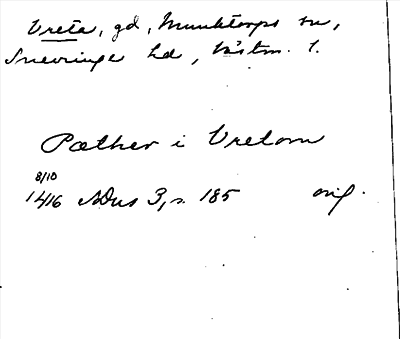 Vreta, gd, Munktorps sn,
Snevringe hd, Västm. l.
Pæther i Vretom
8/10
1416 SDns 3, s. 185 orig.